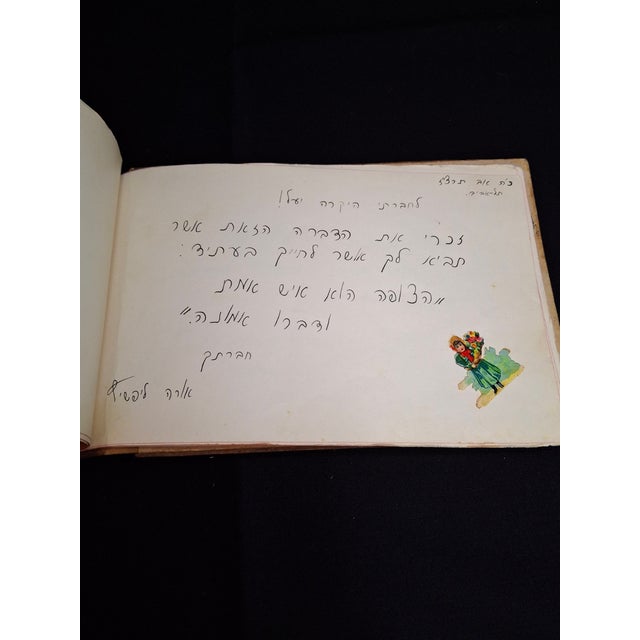 כ"ה אב תרצ"ז
תל אביב.
לחברתי היקרה יעל!
זכרי את הדברה הזאת אשר
תביא לך אושר לחייך בעתיד:
"הצופה הוא איש אמת
ודברו אמונה."
חברתך
אורה ליפשיץ